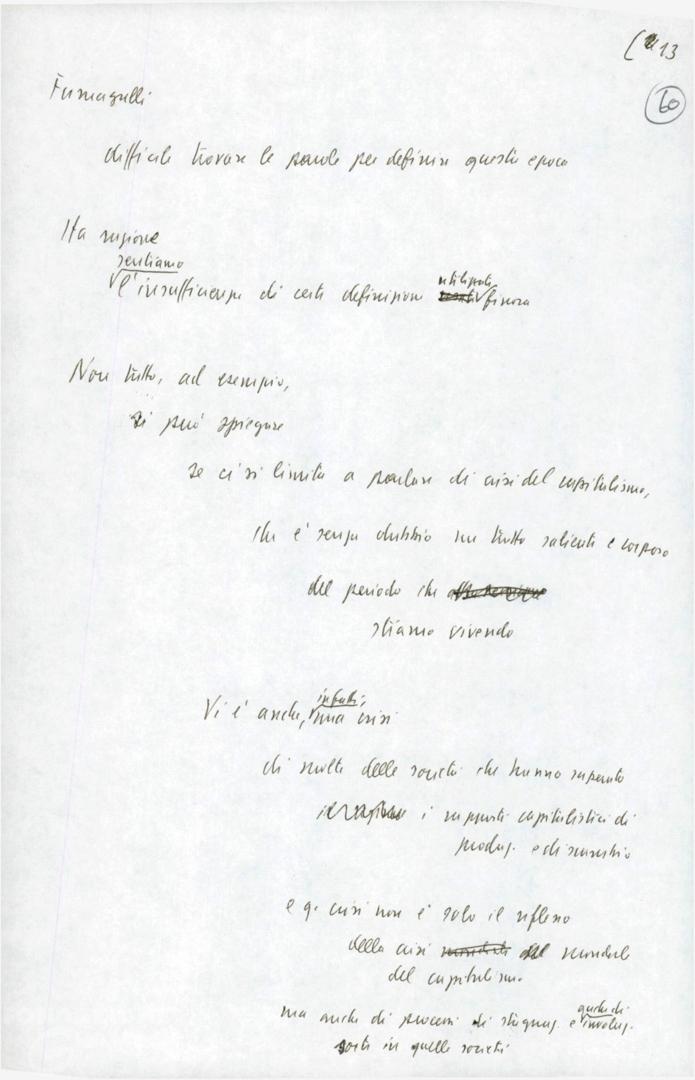 13
60
Fumagalli
difficile trovare le parole per definire questa epoca
Ha ragione
sentiamo
l'insufficienza di certe definizioni utilizzate finora
Non tutto, ad esempio,
si può spiegare
se ci si limita a parlare di crisi del capitalismo,
che è senza dubbio un tratto saliente e corposo
del periodo che
stiamo vivendo
Vi è anche, infatti, una crisi
di molte delle società che hanno superato
i rapporti capitalistici di
produz. e di scambio
e q. crisi non è solo il riflesso
della crisi mondiale
del capitalismo
ma anche di processi di stagnaz. e anche di involuz.
sorti in quelle società